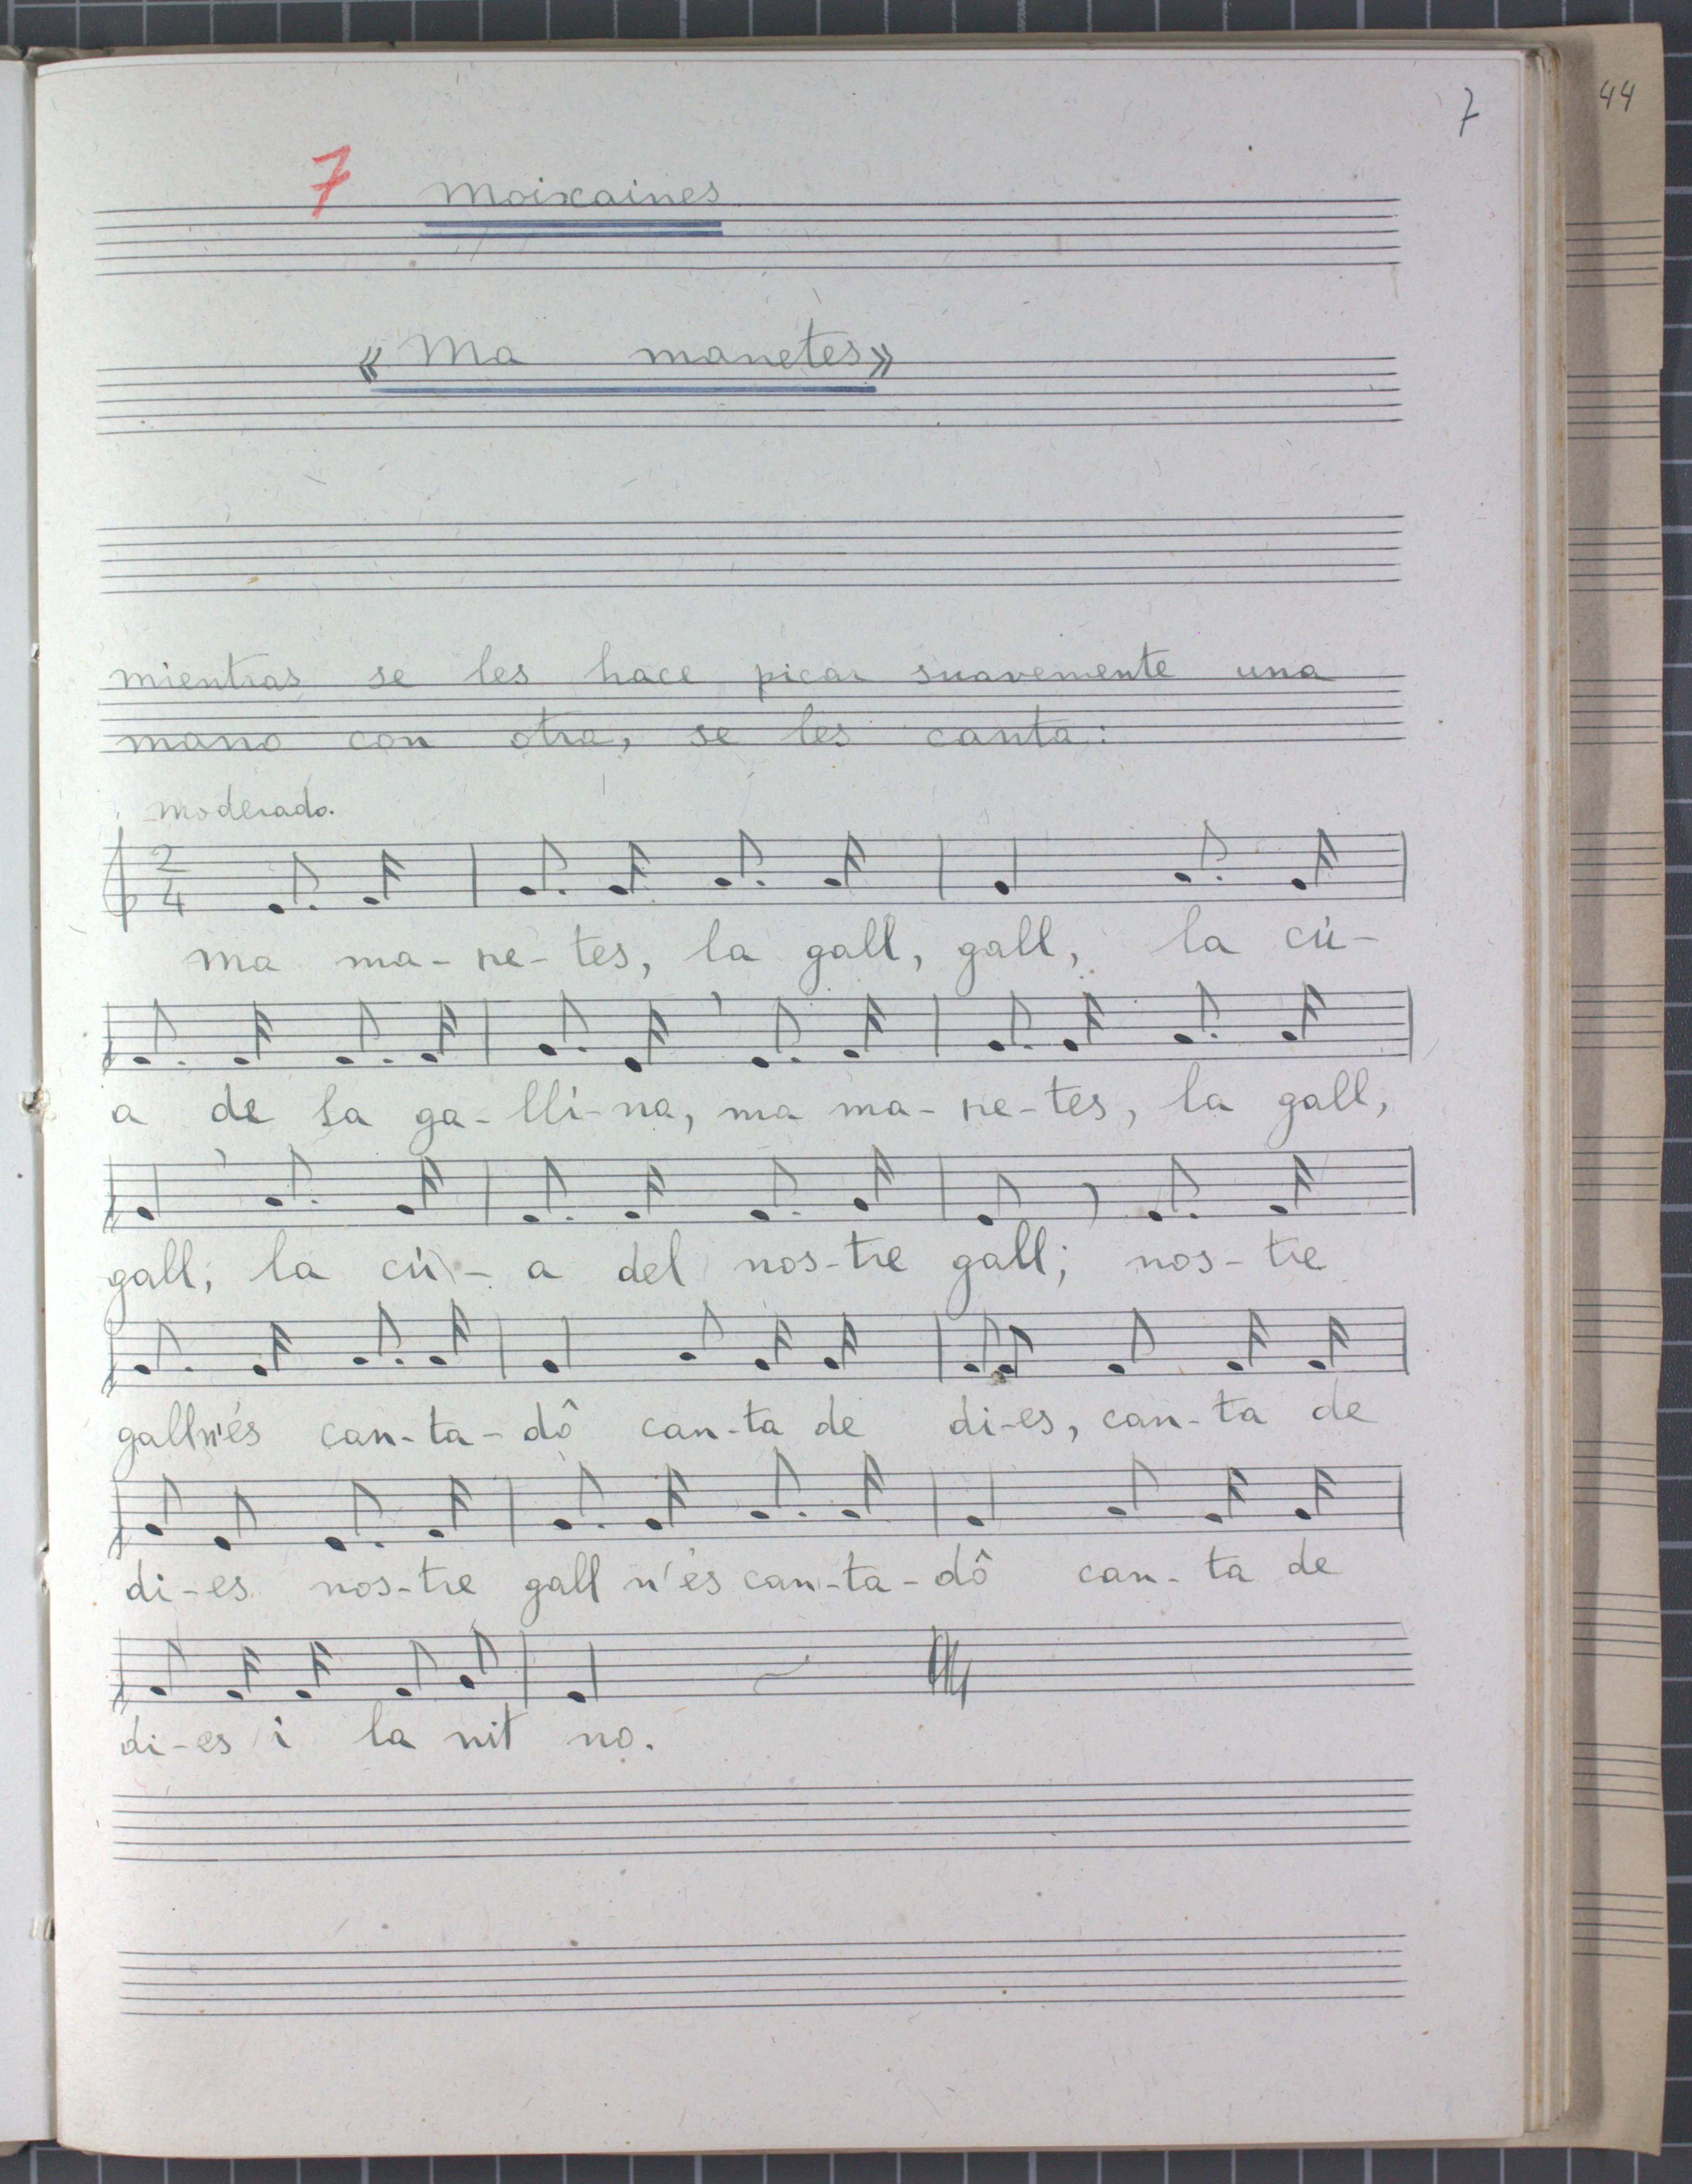 44
7
7 Moixaines
«Ma manetes»
mientras se les hace picar suavemente una
mano con otra, se les canta:
moderado.
2
4
ma ma-ne-tes, la gall, gall, la cú-
a de la ga-lli-na, ma ma-ne-tes, la gall,
gall, la cú-a del nos-tre gall; nos-tre
gall n'és can-ta-dô can-ta de di-es, can-ta de
di-es nos-tre gall n'és can-ta-dô can-ta de
di-es i la nit no.